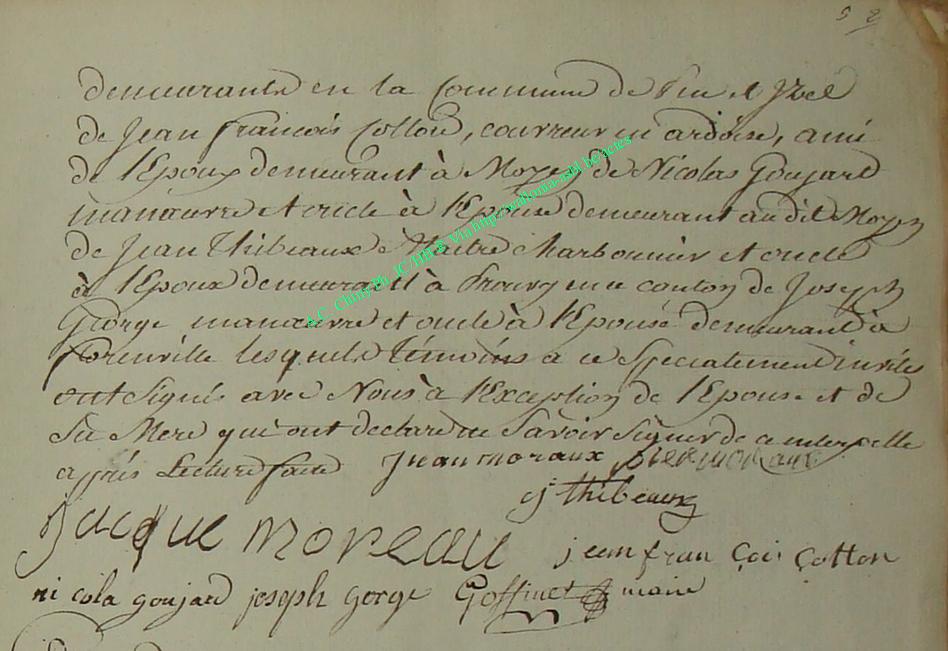 52
demeurants en la Commune de Pin et Izel
de Jean francois Cotton, couvreur en ardoise, ami
de l'Epoux demeurant à Moyen de Nicolas Goujard
manœuvre et oncle à l'Epouse demeurant au dit Moyen
de Jean Thibeaux Maitre Charbonnier et oncle
à l'Epoux demeurant à Prouvy en ce canton de Joseph
George manœuvre et oncle à l'Epouse demeurant à
florenville lesquels témoins à ce Specialement invités
ont Signés avec Nous à l'Exception de l'Epouse et de
Sa Mere qui ont declaré ne Savoir Signer de ce interpelle
après Lecture faite Jean moraux pier moraux
J thibeaux
Jacque moreau jean fran çois cotton
ni cola goujard joseph gorge Goffinet maire
A.C. Chiny Ph. JC HH & Via http://wallonia-asbl.be/actes